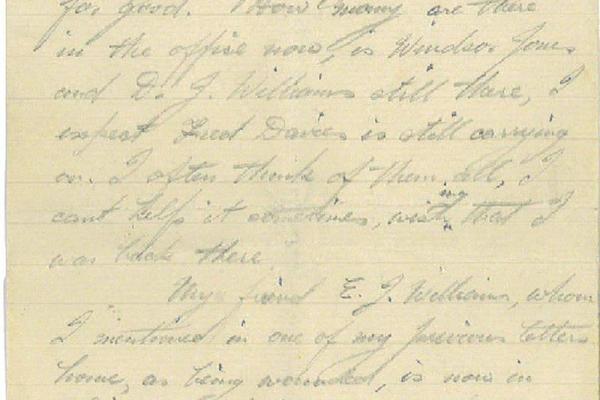 for good. How many are there
in the office now, is Windsor Jones
and D. J. Williams still there, I
expect Fred Davies is still carrying
on. I often think of them all, I
cant help it sometimes, wishing that I
was back there
My friend E. J. Williams, whom
I mentioned in one of my previous letters
home, as being wounded, is now in